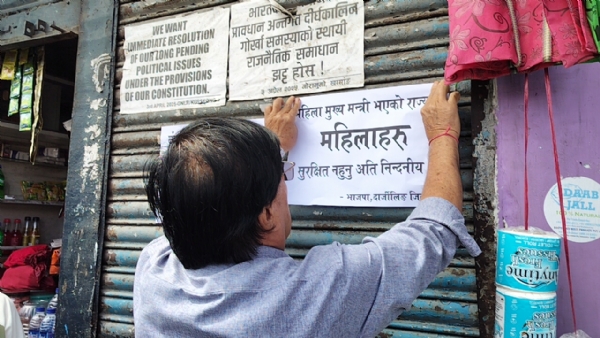 WE WANT
IMMEDIATE RESOLUTION
OF OUR LONG PENDING
POLITICAL ISSUES
UNDER THE PROVISIONS
OF CONSTITUTION.
भारतको
प्रावधान अन्तर्गत दीर्घकालिन
गोर्खा समस्याको स्थायी
राजनैतिक समाधान
झट्टै होस !
महिला मुख्य मन्त्री भएको
महिलाहरु
सुरक्षित नहुनु अति निन्दनीय
- भाजपा, दार्जीलिङ जि
DAAB
JALL
Anytime